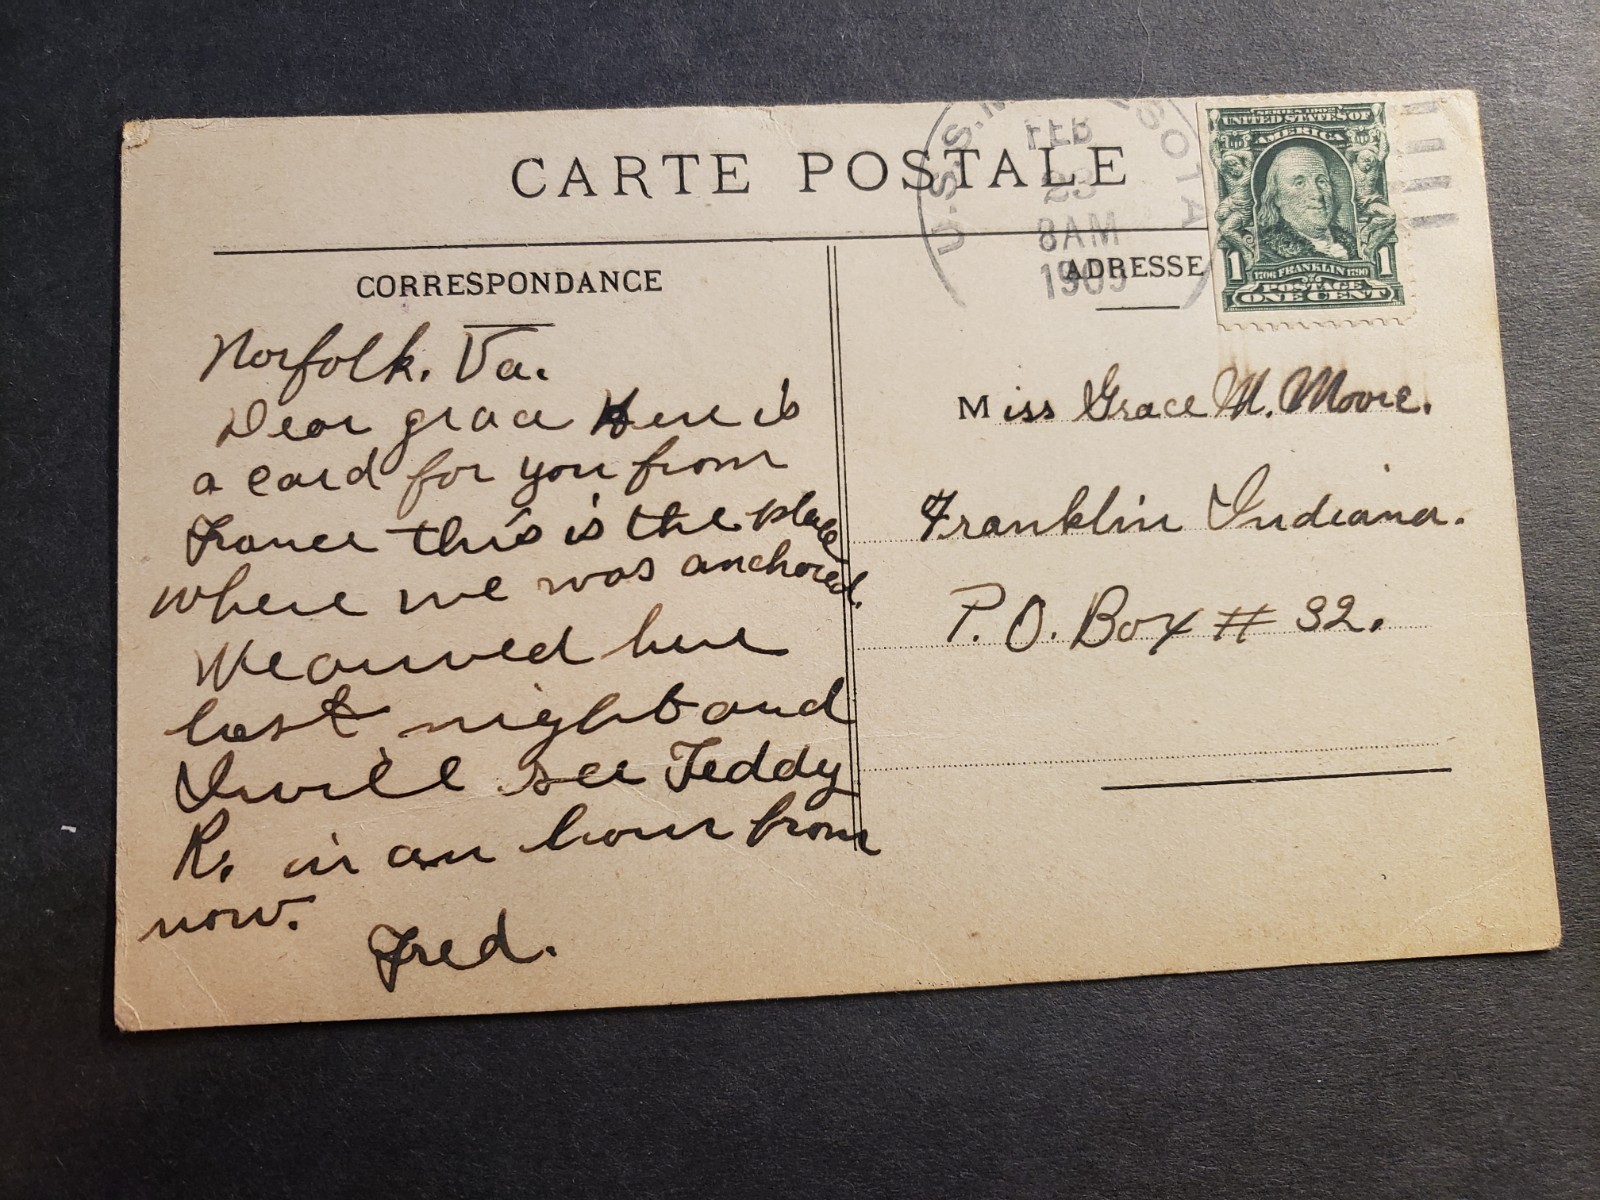 CARTE POSTALE
CORRESPONDANCE
Norfolk. Va.
Dear grace Here is
a card for you from
France this is the place
where we was anchored.
We arrived here
last night and
I will see Teddy
R. in an hour from
now.
Fred.
U.S.S. M SOTA
FEB
23
8AM
1909
ADRESSE
SERIES 1902
UNITED STATES OF
AMERICA
1 1706 FRANKLIN 1790 1
POSTAGE
ONE CENT
Miss Grace M. Moore.
Franklin Indiana.
P.O. Box # 32.